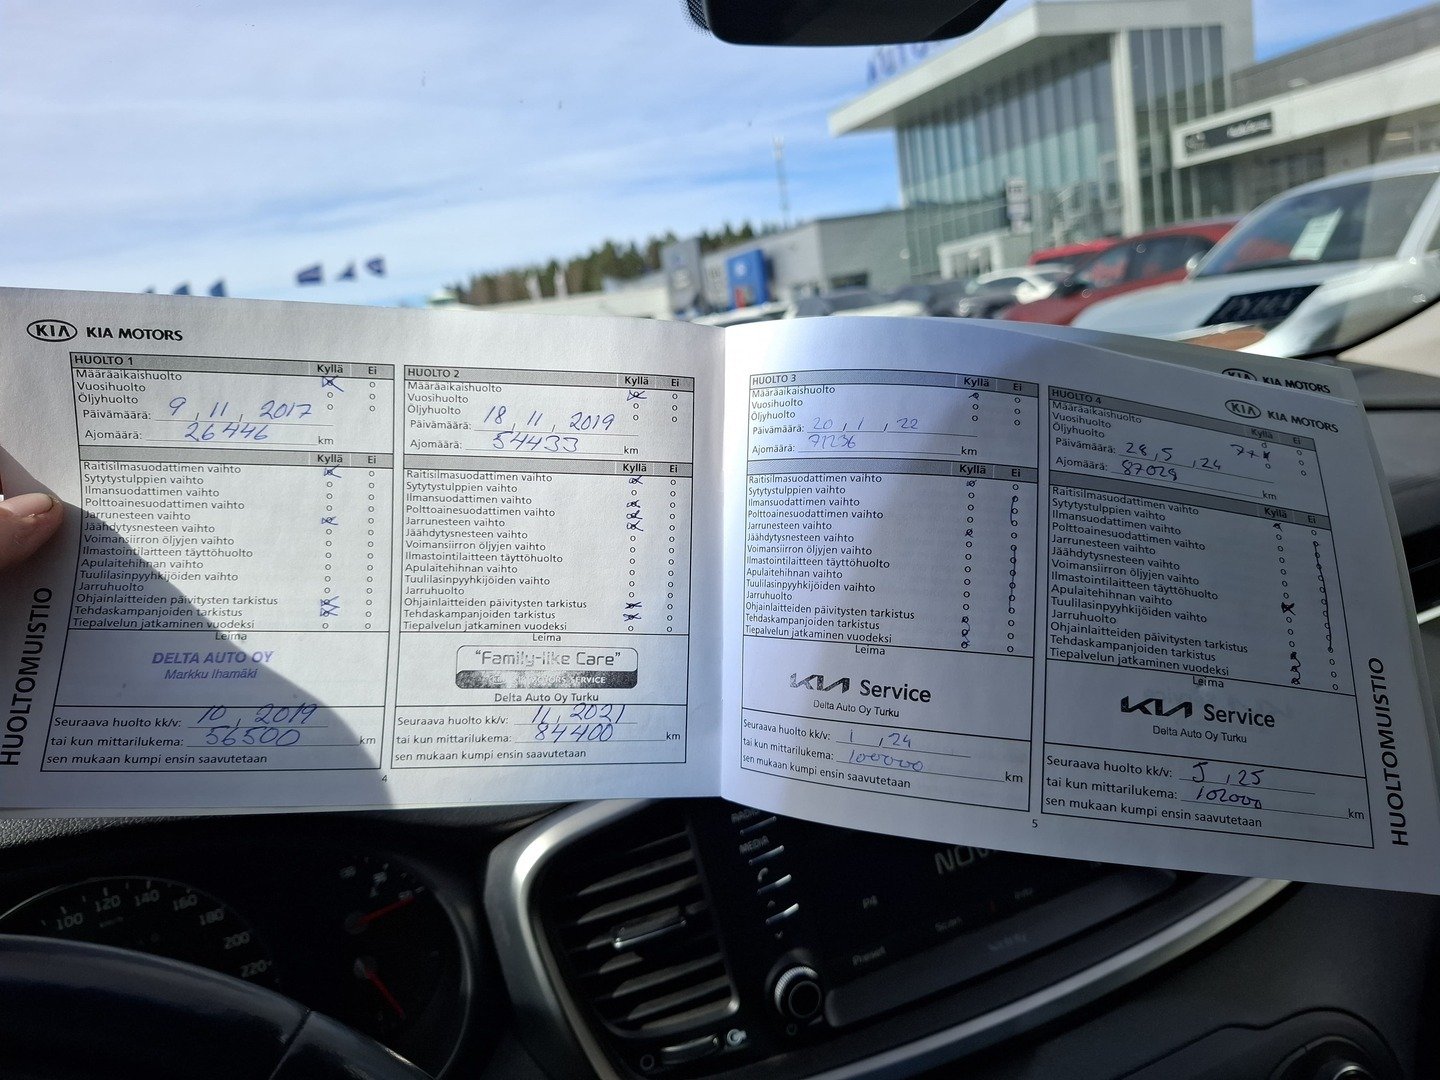 KIA KIA MOTORS
HUOLTO 1 Kyllä Ei
Määräaikaishuolto
Vuosihuolto
Öljyhuolto
Päivämäärä: 9 , 11 , 2017
Ajomäärä: 26446 km
Kyllä Ei
Raitisilmasuodattimen vaihto
Sytytystulppien vaihto
Ilmansuodattimen vaihto
Polttoainesuodattimen vaihto
Jarrunesteen vaihto
Jäähdytysnesteen vaihto
Voimansiirron öljyjen vaihto
Ilmastointilaitteen täyttöhuolto
Apulaitehihnan vaihto
Tuulilasinpyyhkijöiden vaihto
Jarruhuolto
Ohjainlaitteiden päivitysten tarkistus
Tehdaskampanjoiden tarkistus
Tiepalvelun jatkaminen vuodeksi
Leima
DELTA AUTO OY
Markku Ihamäki
Seuraava huolto kk/v: 10 , 2019
tai kun mittarilukema: 56500 km
sen mukaan kumpi ensin saavutetaan
4
HUOLTOMUISTIO
HUOLTO 2 Kyllä Ei
Määräaikaishuolto
Vuosihuolto
Öljyhuolto
Päivämäärä: 18 , 11 , 2019
Ajomäärä: 54433 km
Kyllä Ei
Raitisilmasuodattimen vaihto
Sytytystulppien vaihto
Ilmansuodattimen vaihto
Polttoainesuodattimen vaihto
Jarrunesteen vaihto
Jäähdytysnesteen vaihto
Voimansiirron öljyjen vaihto
Ilmastointilaitteen täyttöhuolto
Apulaitehihnan vaihto
Tuulilasinpyyhkijöiden vaihto
Jarruhuolto
Ohjainlaitteiden päivitysten tarkistus
Tehdaskampanjoiden tarkistus
Tiepalvelun jatkaminen vuodeksi
Leima
"Family-like Care"
MOTORS SERVICE
Delta Auto Oy Turku
Seuraava huolto kk/v: 11, 2021
tai kun mittarilukema: 84400 km
sen mukaan kumpi ensin saavutetaan
HUOLTO 3 Kyllä Ei
Määräaikaishuolto
Vuosihuolto
Öljyhuolto
Päivämäärä: 20 , 1 , 22
Ajomäärä: 71236 km
Kyllä Ei
Raitisilmasuodattimen vaihto
Sytytystulppien vaihto
Ilmansuodattimen vaihto
Polttoainesuodattimen vaihto
Jarrunesteen vaihto
Jäähdytysnesteen vaihto
Voimansiirron öljyjen vaihto
Ilmastointilaitteen täyttöhuolto
Apulaitehihnan vaihto
Tuulilasinpyyhkijöiden vaihto
Jarruhuolto
Ohjainlaitteiden päivitysten tarkistus
Tehdaskampanjoiden tarkistus
Tiepalvelun jatkaminen vuodeksi
Leima
KIA Service
Delta Auto Oy Turku
Seuraava huolto kk/v: 1 , 24
tai kun mittarilukema: 100000 km
sen mukaan kumpi ensin saavutetaan
5
KIA KIA MOTORS
KIA KIA MOTORS
HUOLTO 4 Kyllä Ei
Määräaikaishuolto
Vuosihuolto
Öljyhuolto
Päivämäärä: 28, 5 , 24
Ajomäärä: 87029 km
Kyllä Ei
Raitisilmasuodattimen vaihto
Sytytystulppien vaihto
Ilmansuodattimen vaihto
Polttoainesuodattimen vaihto
Jarrunesteen vaihto
Jäähdytysnesteen vaihto
Voimansiirron öljyjen vaihto
Ilmastointilaitteen täyttöhuolto
Apulaitehihnan vaihto
Tuulilasinpyyhkijöiden vaihto
Jarruhuolto
Ohjainlaitteiden päivitysten tarkistus
Tehdaskampanjoiden tarkistus
Tiepalvelun jatkaminen vuodeksi
Leima
KIA Service
Delta Auto Oy Turku
Seuraava huolto kk/v: 5 , 25
tai kun mittarilukema: 102000 km
sen mukaan kumpi ensin saavutetaan
HUOLTOMUISTIO
100 120 140 160 180 200 220
MEDIA